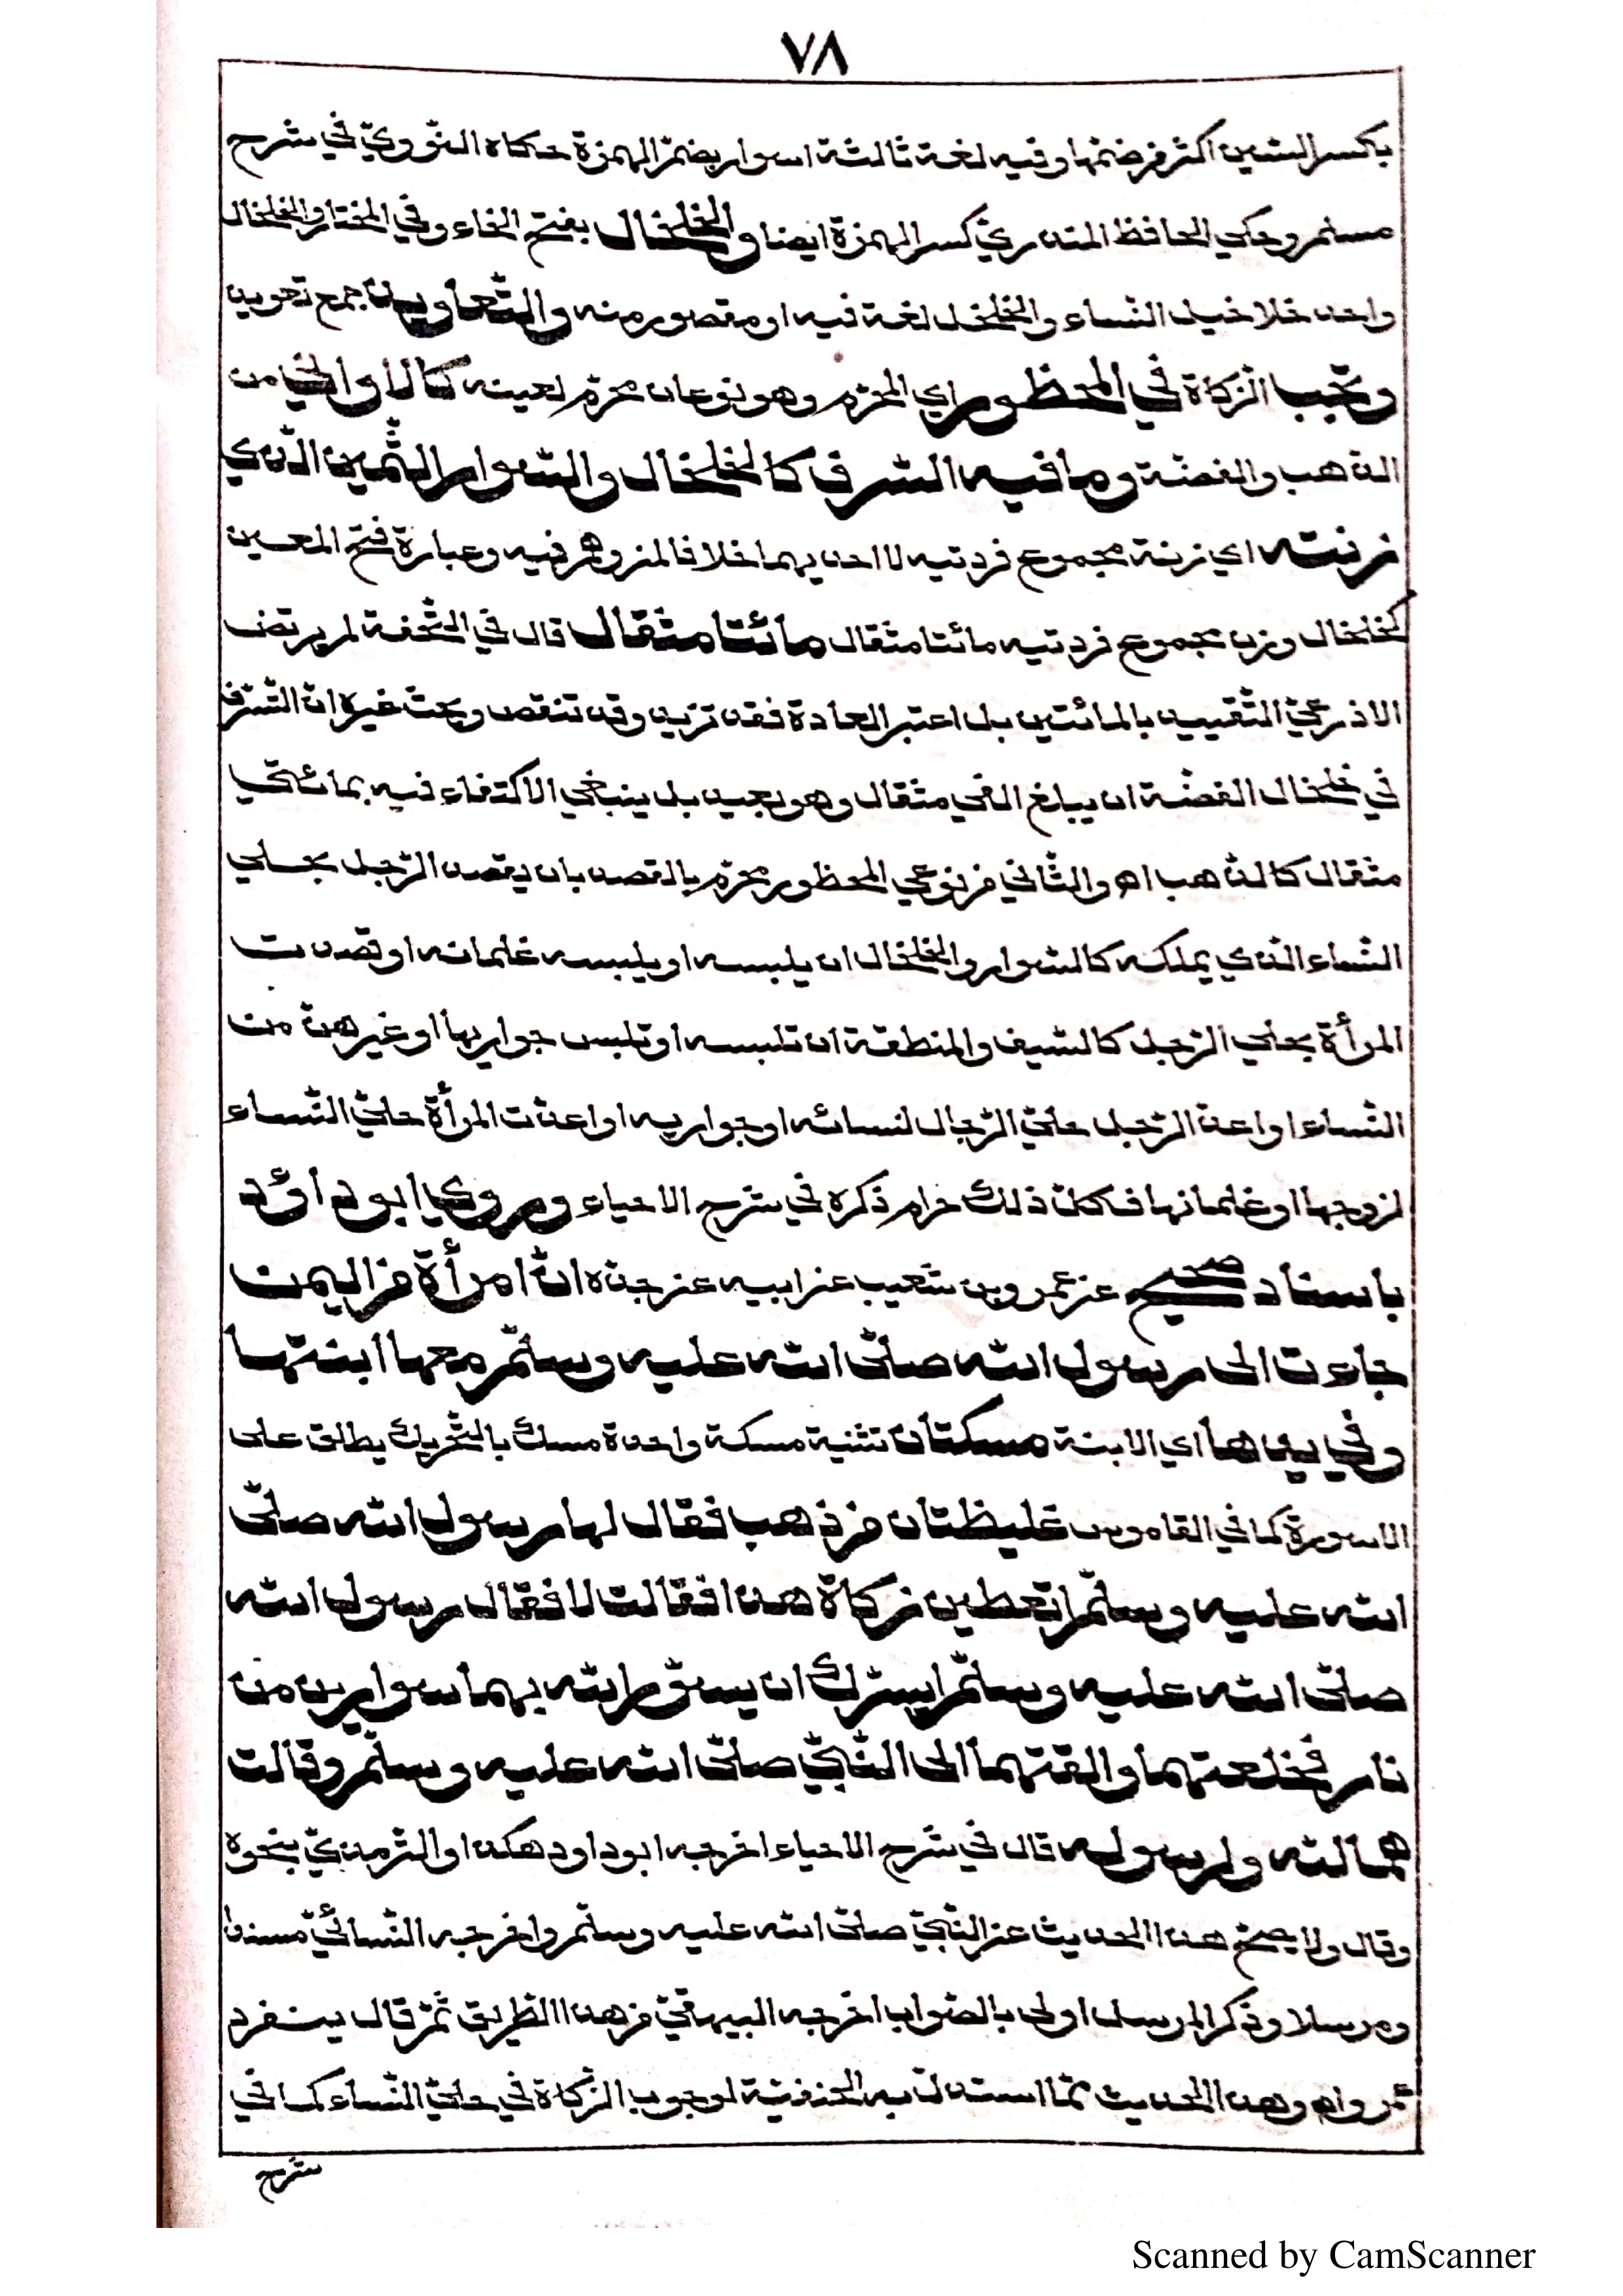 ٧٨
بكسر السين اكثر من ضمّها وفيه لغة ثالثة اسوار بضمّ الهمزة حكاه النّوويّ في شرح
مسلم وحكي الحافظ المنذريّ كسر الهمزة ايضا والخلخال بفتح الخاء وفي المختار والخلخال
واحد خلاخيل النّساء والخلخل لغة فيه او مقصور منه والتّعاويذ جمع تعويذ
وتجب الزّكاة في المحظور اي المحرّم وهو نوعان محرّم لعينه كالاواني من
الذهب والفضّة وما فيه السّرف كالخلخال والسّوار الثّمين الّذي
زنته اي زنة مجموع فردتيه لا احديهما خلافا لمن وهم فيه وعبارة فتح المعين
كخلخال وزن مجموع فردتيه مائتا مثقال مائتا مثقال قال في التّحفة لم يرتض
الاذرعيّ التّقييد بالمائتين بل اعتبر العادة فقد تزيد وقد تنقص وبحث غيره انّ السّرف
في خلخال الفضّة ان يبلغ الفي مثقال وهو بعيد بل ينبغي الاكتفاء فيه بمائتي
مثقال كالذّهب اه والثّاني من نوعي المحظور محرّم بالقصد بان يقصد الرّجل بحلي
النّساء الّذي يملكه كالسّوار والخلخال ان يلبسه او يلبسه غلمانه او قصدت
المرأة بحلي الرّجل كالسّيف والمنطقة ان تلبسه او تلبس جواريها او غيرهنّ من
النّساء او اعدّ الرّجل حليّ الرّجال لنسائه او جواريه او اعدّت المرأة حليّ النّساء
لزوجها او غلمانها فكلّ ذلك حرام ذكره في شرح الاحياء وروي ابو داؤد
باسناد صحيح عن عمرو بن شعيب عن ابيه عن جدّه انّ امرأة من اليمن
جاءت الى رسول الله صلّى الله عليه وسلّم معها ابنتها
وفي يدها اي الابنة مسكتان تثنية مسكة واحدة مسك بالتّحريك يطلق على
الاسورة كما في القاموس غليظتان من ذهب فقال لها رسول الله صلّى
الله عليه وسلّم اتعطين زكاة هذا فقالت لا فقال رسول الله
صلّى الله عليه وسلّم ايسرّك ان يسوّر الله بهما سوارين من
نار فخلعتهما والقتهما الى النّبيّ صلّى الله عليه وسلّم وقالت
هما لله ولرسوله قال في شرح الاحياء اخرجه ابو داود هكذا والتّرمذيّ بنحوه
وقال ولا يصحّ هذا الحديث عن النّبيّ صلّى الله عليه وسلّم واخرجه النّسائيّ مسندا
ومرسلا وذكر المرسل اولى بالصّواب اخرجه البيهقيّ من هذا الطّريق ثمّ قال ينفرد
عمرو اه وهذا الحديث ممّا استدلّ به الحنفيّة لوجوب الزّكاة في حليّ النّساء كما في
شرح
Scanned by CamScanner